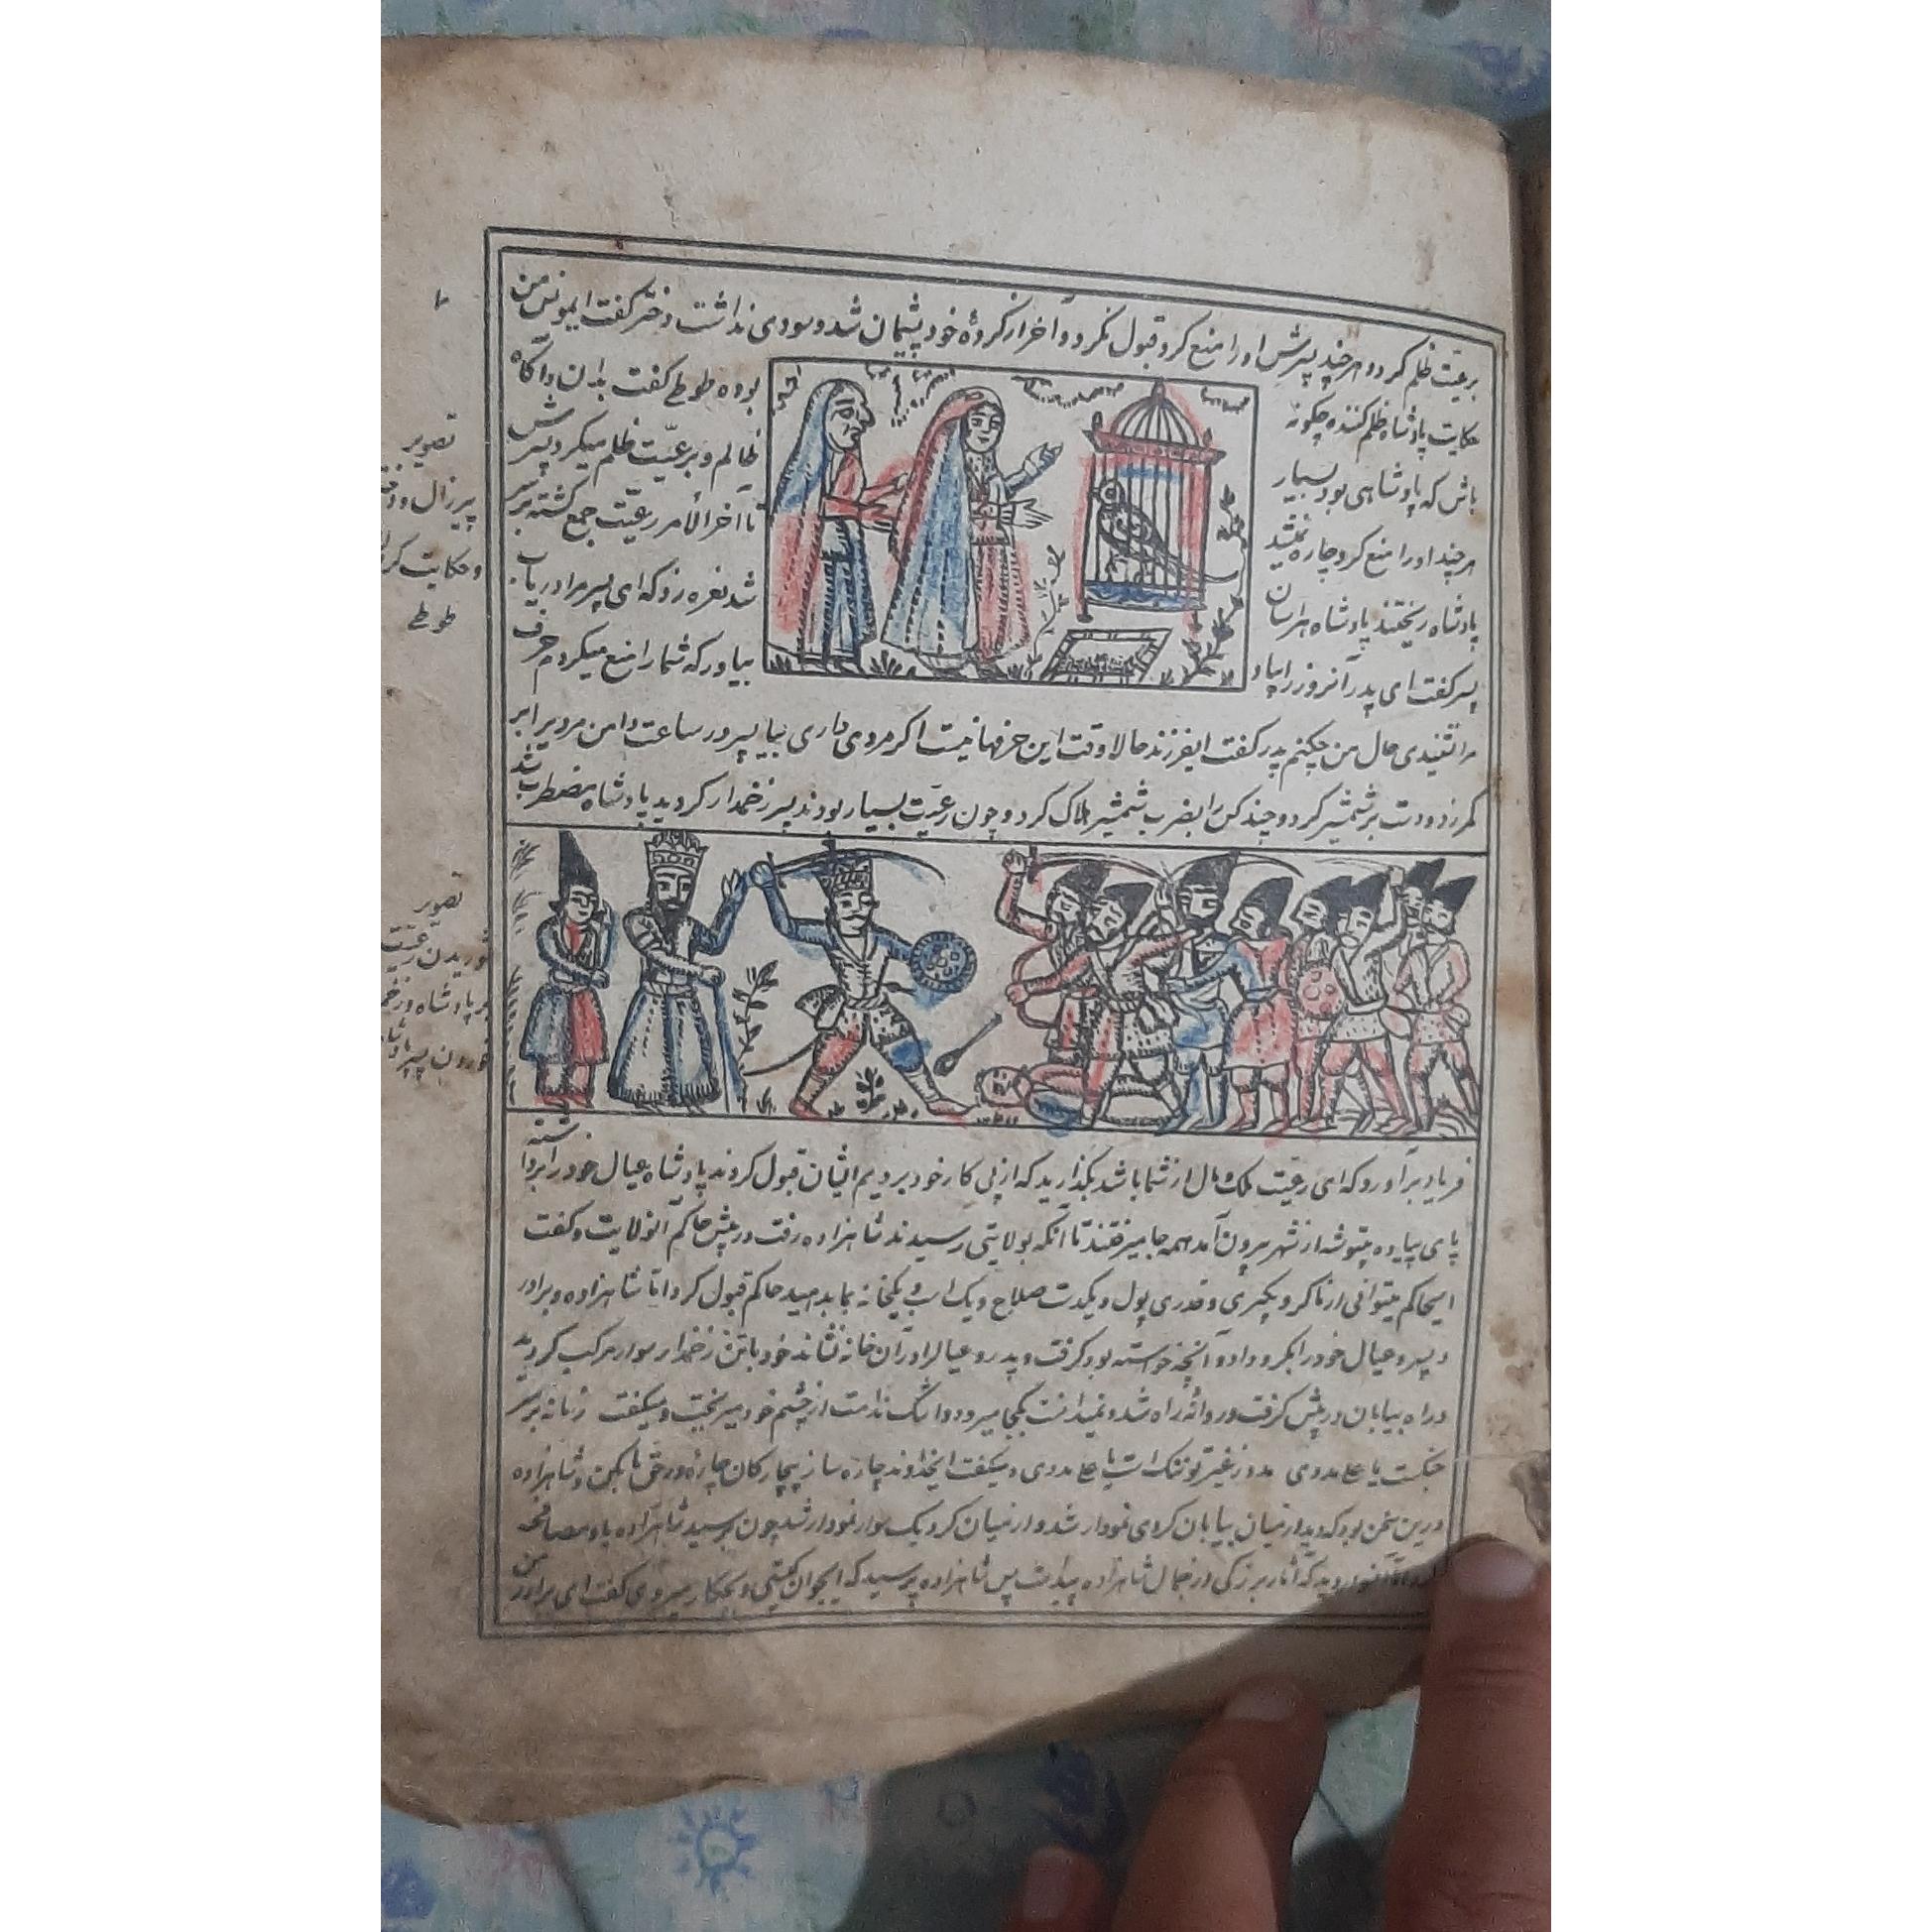 برعیت ظلم کرد و هرچند پسرش او را منع کرد قبول نکرد و آخر از کردهٔ خود پشیمان شد و سودی نداشت دختر گفت ایمونس من
حکایت پادشاه ظلم کننده چگونه بوده طوطی گفت بدان و آگاه
باش که پادشاهی بود بسیار ظالم و برعیّت ظلم میکرد پسرش
هر چند او را منع کرد چاره نمیشد تا آخر الأمر رعیّت جمع گشته بر سر
پادشاه ریختند پادشاه هراسان شد نعره زد که ای پسر مرا دریاب
پسر گفت ای پدر آنروز را بیاد بیاور که شما را منع میکردم حرف
مرا نشنیدی حال من چکنم پدر گفت ایفرزند حالا وقت این حرفها نیست اگر مردی داری بیا پسر در ساعت دامن مردی بر
کمر زد و دست بر شمشیر کرد و چند کس را بضرب شمشیر هلاک کرد و چون رعیّت بسیار بودند پسر زخمدار کردید پادشاه مضطرب شد
فریاد برآورد که ای رعیّت ملک و مال از شما باشد بگذارید که از پی کار خود برویم ایشان قبول کردند پادشاه عیال خود را برداشته
پای پیاده بیتوشه از شهر بیرون آمد همه جا میرفتند تا آنکه بولایتی رسیدند شاهزاده رفت در پیش حاکم انولایت و گفت
ایحاکم میتوانی از ما کرو بگیری و قدری پول و یکدست صلاح و یک اسب و یکخانه بما بدهید حاکم قبول کرد اما شاهزاده و برادر
و پسر و عیال خود را بکرو داد و آنچه خواسته بود گرفت و پدر و عیالرا در آن خانه نشاند خود با تن زخمدار سوار مرکب کردید
و راه بیابان در پیش گرفت و روانهٔ راه شد و نمیدانست بکجا میرود و اشک ندامت از چشم خود میریخت و میگفت زمانه بر سر
جنگست یا علی مددی مدد ز غیر تو ننگ است یا علی مددی و میگفت ایخداوند چاره ساز بیچارکان چارهٔ در حق ما بکن و شاهزاده
درین سخن بود که دید از میان بیابان کردی نمودار شد و از میان کرد یک سوار نمودار شد چون برسید شاهزاده باو مصافحه
دید که آثار بزرگی در جمال شاهزاده پیداست پس شاهزاده پرسید که ایجوان کیستی و بچکار میروی گفت ای برادر من
تصویر
پیرزال و
و حکایت
طوطی
تصویر
شوریدن رعیّت
بر پادشاه و زخم
خوردن پسر